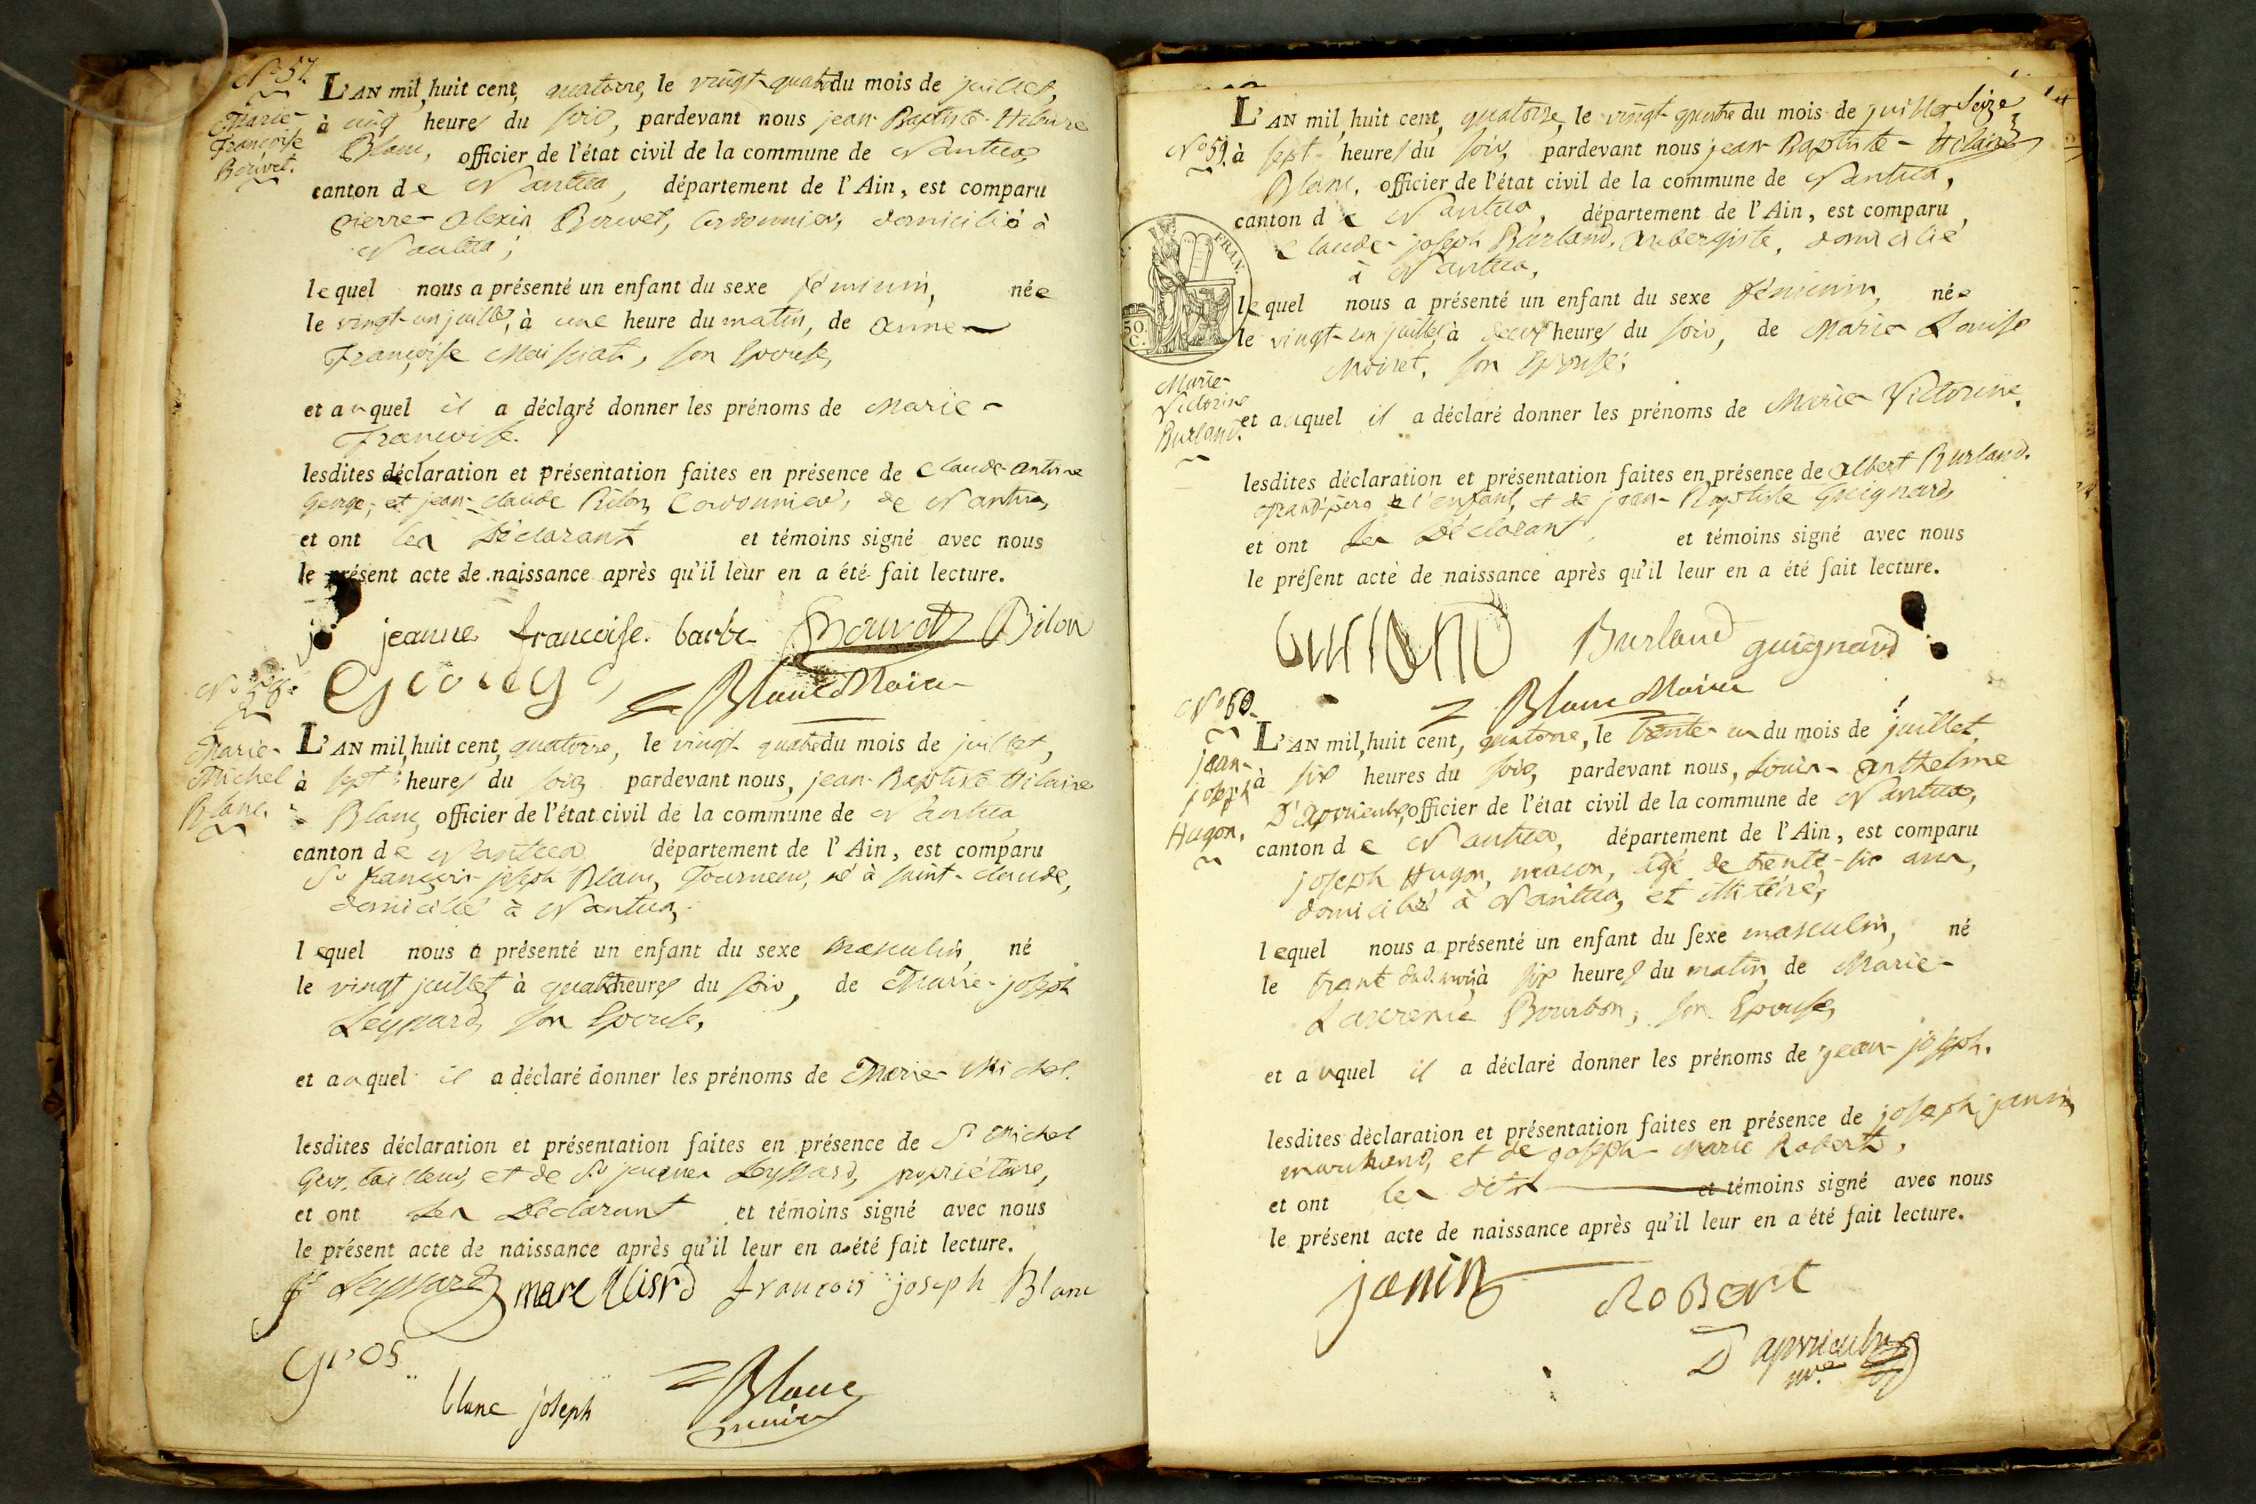 N.º 57.
Marie-
Françoise
Bouvet.
L'AN mil, huit cent, quatorze, le vingt-quatre du mois de juillet,
à cinq heures du soir, pardevant nous jean-Baptiste-Hilaire
Blanc, officier de l'état civil de la commune de Nantua,
canton de Nantua, département de l'Ain, est comparu
Pierre-Alexis Bouvet, Cordonnier, domicilié à
Nantua;
lequel nous a présenté un enfant du sexe féminin, née
le vingt-un juillet, à une heure du matin, de Anne-
Françoise Maissiat, son Epouse,
et auquel il a déclaré donner les prénoms de Marie-
Françoise.
lesdites déclaration et présentation faites en présence de Claude-Antoine
George, et jean-Claude Bilon, Cordonnier, de Nantua,
et ont les Déclarant et témoins signé avec nous
le présent acte de naissance après qu'il leur en a été fait lecture.
j jeanne francoise barbe Bouvet Bilon
George
Blanc Maire
N.º 58.
Marie-
Michel
Blanc.
L'AN mil, huit cent, quatorze, le vingt-quatre du mois de juillet,
à sept heures du soir, pardevant nous, jean-Baptiste Hilaire
Blanc, officier de l'état civil de la commune de Nantua
canton de Nantua département de l'Ain, est comparu
Sr françois-joseph Blanc, Tourneur, né à saint-claude,
domicilié à Nantua,
lequel nous a présenté un enfant du sexe masculin, né
le vingt juillet à quatre heures du soir, de Marie-joseph
Leyssard, son Epouse,
et auquel il a déclaré donner les prénoms de Marie-Michel.
lesdites déclaration et présentation faites en présence de Sr Michel
tailleur, et de Sr jacques Leyssard, propriétaire,
et ont les Déclarant et témoins signé avec nous
le présent acte de naissance après qu'il leur en a été fait lecture.
Leyssard francois joseph Blanc
gros
blanc joseph
Blanc
maire
Seize
L'AN mil, huit cent, quatorze, le vingt-quatre du mois de juillet,
N.º 59. à sept heures du soir, pardevant nous jean-Baptiste-Hilaire
Blanc, officier de l'état civil de la commune de Nantua,
canton de Nantua, département de l'Ain, est comparu
Claude-joseph Burland, aubergiste, domicilié
à Nantua,
FRAN.
50.
C.
lequel nous a présenté un enfant du sexe féminin, née
le vingt-un juillet à deux heures du soir, de Marie Louise
Moiret, son Epouse;
Marie-
Victorine
Burland.
et auquel il a déclaré donner les prénoms de Marie-Victorine.
lesdites déclaration et présentation faites en présence de Albert Burland,
grand-père de l'enfant, et de jean-Baptiste Guignard,
et ont les Déclarant, et témoins signé avec nous
le présent acte de naissance après qu'il leur en a été fait lecture.
burland Burland guignard
Blanc Maire
N.º 60.
jean-
joseph
Hugon.
L'AN mil, huit cent, quatorze, le trente-un du mois de juillet,
à six heures du soir, pardevant nous, Louis-Anthelme
D'apvrieulx, officier de l'état civil de la commune de Nantua,
canton de Nantua, département de l'Ain, est comparu
joseph Hugon, maçon, âgé de trente-six ans,
domicilié à Nantua, et illitéré,
lequel nous a présenté un enfant du sexe masculin, né
le trente dud. mois, à six heures du matin, de Marie-
Laurence Bourbon, son Epouse,
et auquel il a déclaré donner les prénoms de jean-joseph.
lesdites déclaration et présentation faites en présence de joseph janin,
marchand, et de joseph-Marie Robert,
et ont les dits et témoins signé avec nous
le présent acte de naissance après qu'il leur en a été fait lecture.
janin
Robert
D'apvrieulx